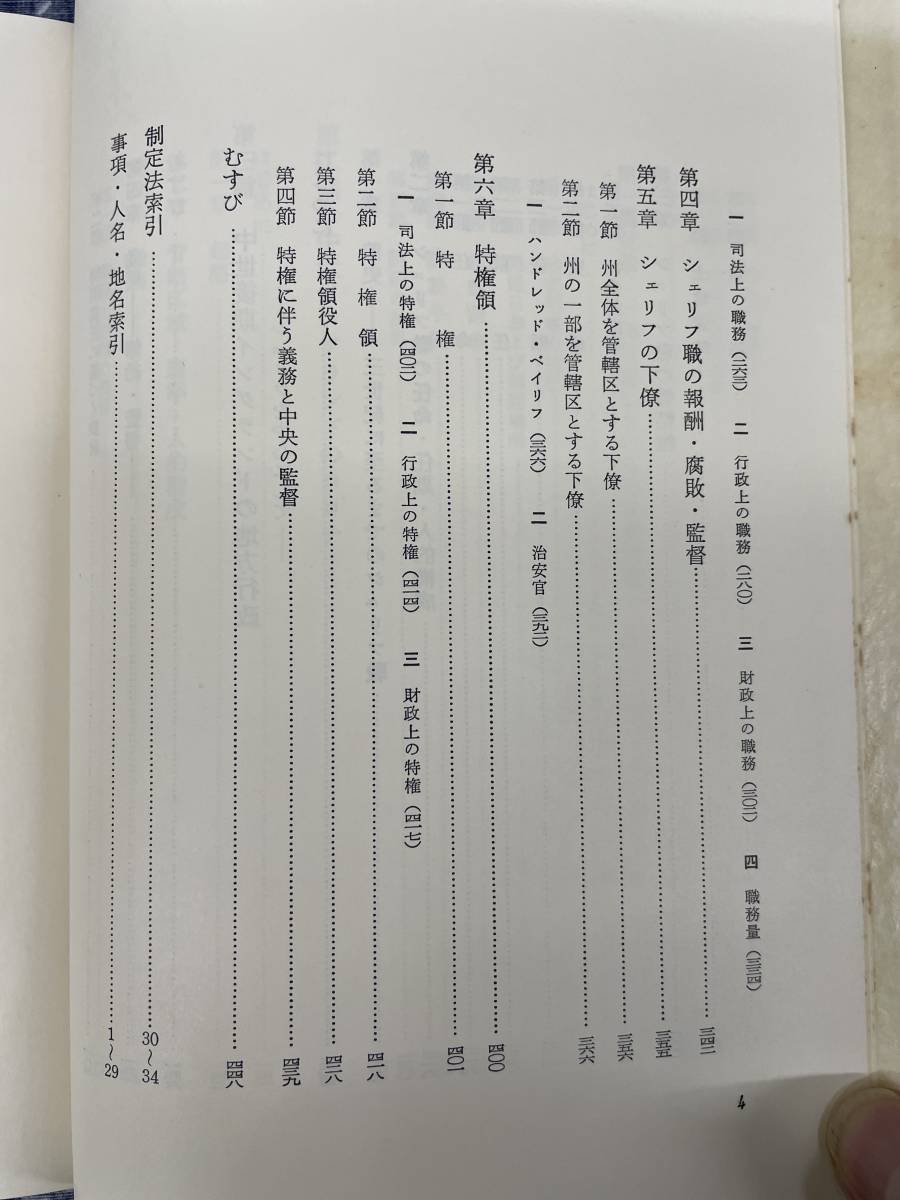 一 司法上の職務(二六三) 二 行政上の職務(二八〇) 三 財政上の職務(三〇二) 四 職務量(三三四)
第四章 シェリフ職の報酬・腐敗・監督……三四二
第五章 シェリフの下僚……三五五
第一節 州全体を管轄区とする下僚……三五六
第二節 州の一部を管轄区とする下僚……三六六
一 ハンドレッド・ベイリフ(三六六) 二 治安官(三九二)
第六章 特権領……四〇〇
第一節 特権……四〇一
一 司法上の特権(四〇二) 二 行政上の特権(四一四) 三 財政上の特権(四一七)
第二節 特権領……四一八
第三節 特権領役人……四二八
第四節 特権に伴う義務と中央の監督……四三九
むすび……四四八
制定法索引……30〜34
事項・人名・地名索引……1〜29
4